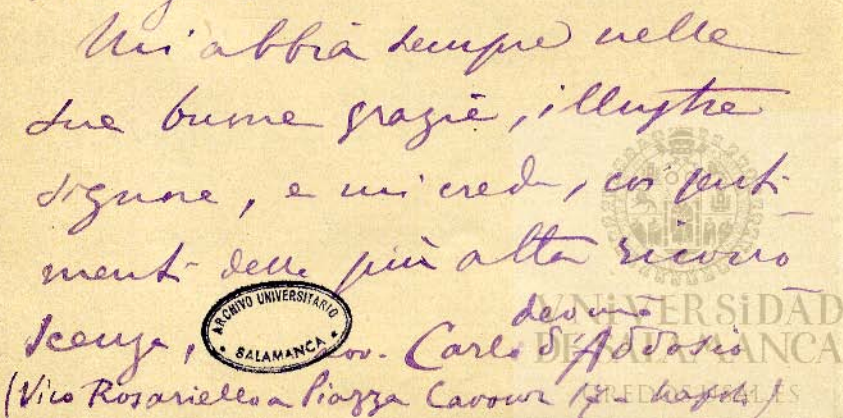 Mi abbia sempre nelle
sue buone grazie, illustre
signore, e mi creda, coi senti-
menti della più alta ricono
scenza,
devmo
Carlo d'Addosio
(Vico Rosariello a Piazza Cavour Napoli)
ARCHIVO UNIVERSITARIO
SALAMANCA
VNiVERSiDAD
DE SALAMANCA
GREDOS.USAL.ES